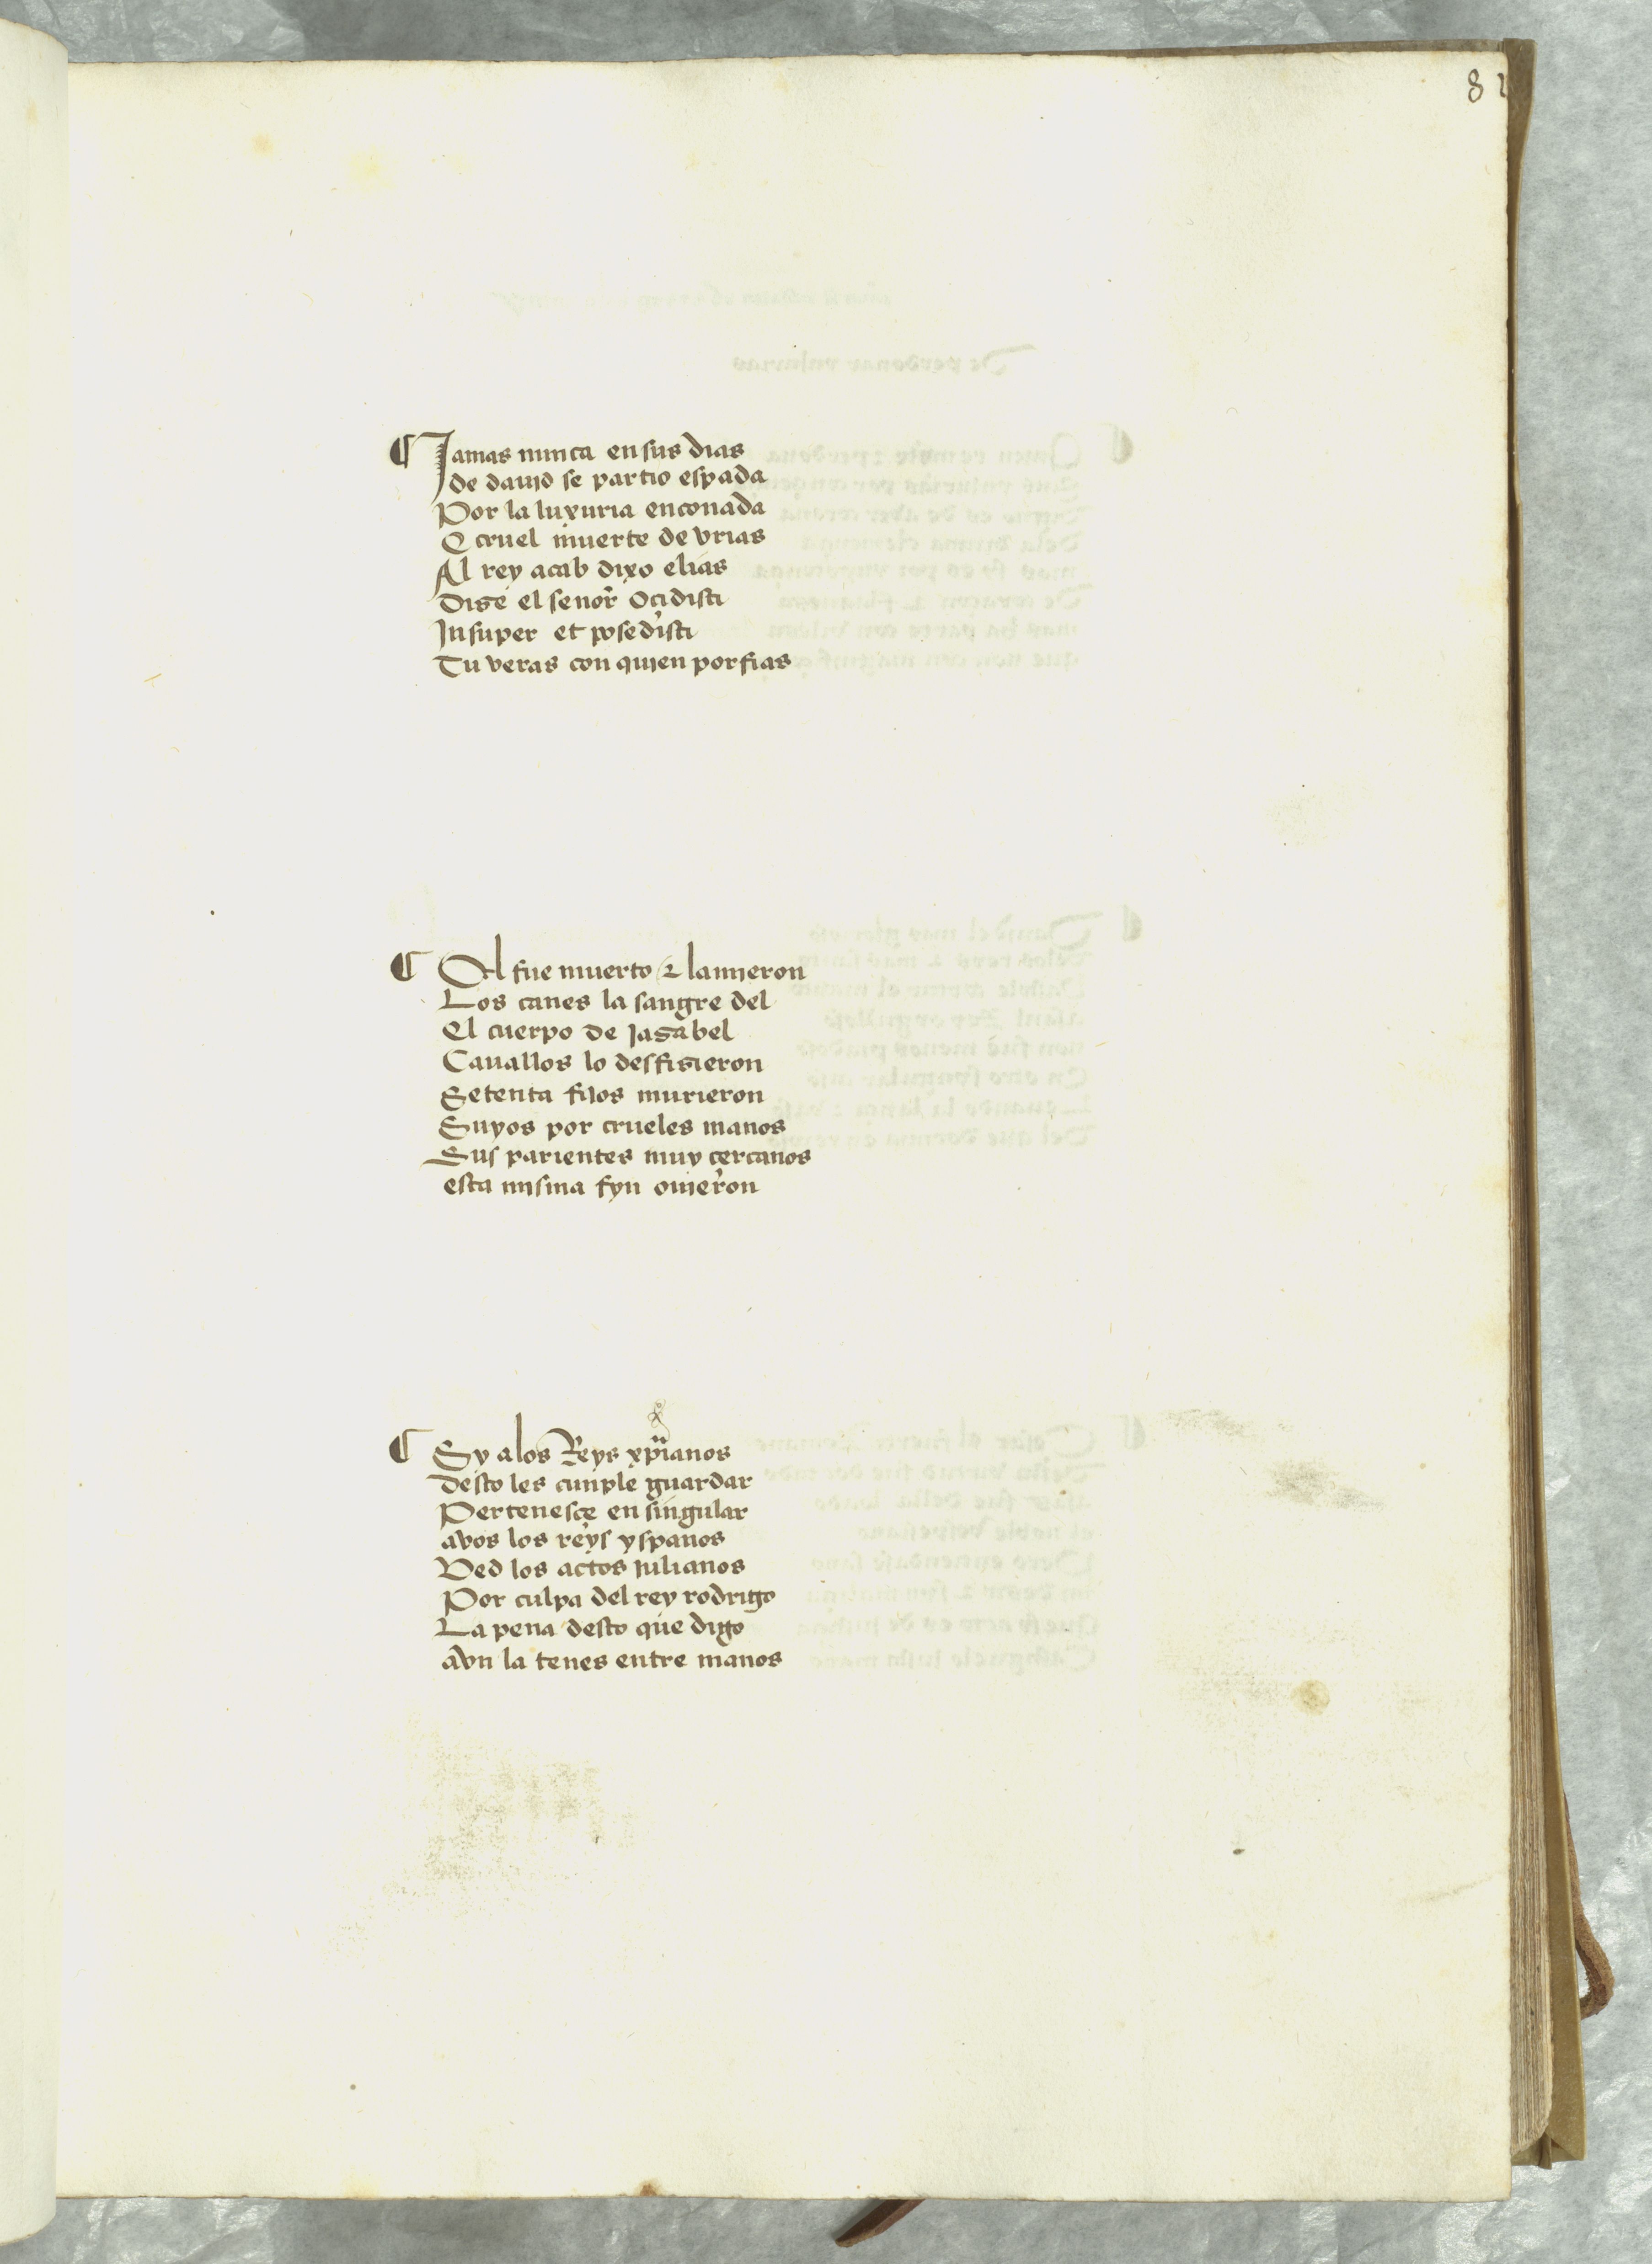 81
¶ Jamas nunca en sus dias
de dauid se partio espada
Por la luxuria enconada
E cruel muerte de vrias
Al rey acab dixo elias
Dize el senor Ocidisti
Jn super et posedisti
Tu veras con quien porfias
¶ El fue muerto & lamieron
Los canes la sangre del
El cuerpo de Jazabel
Cauallos lo desfizieron
Setenta fijos murieron
Suyos por crueles manos
Sus parientes muy cercanos
esta misma fyn ouieron
¶ Sy a los Reys xpianos
desto les cunple guardar
Pertenesçe en singular
avos los reys yspanos
Ved los actos julianos
Por culpa del rey rodrigo
La pena desto que digo
avn la tenes entre manos